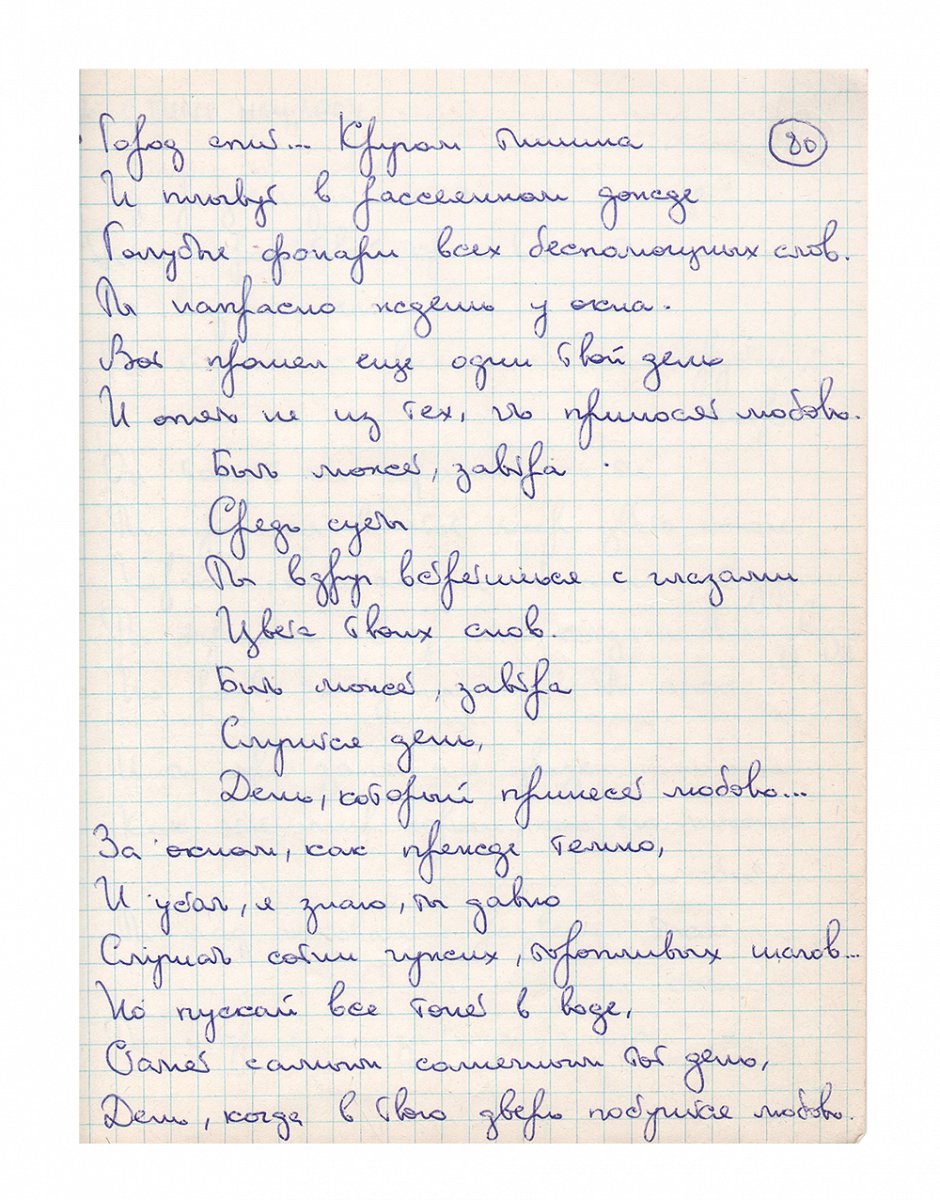 Город спит... Кругом тишина
80
И плывут в рассеянном дожде
Голубые фонари всех беспомощных слов.
Ты напрасно ждешь у окна.
Вот прошел еще один твой день
И опять не из тех, что приносят любовь.
Быть может, завтра
Средь суеты
Ты вдруг встретишься с глазами
Цвета твоих снов.
Быть может, завтра
Случится день,
День, который принесет любовь...
За окном, как прежде темно,
И устал, я знаю, ты давно
Слушать сотни чужих, торопливых шагов...
Но пускай все тонет в воде,
Станет самым солнечным тот день,
День, когда в твою дверь постучится любовь.